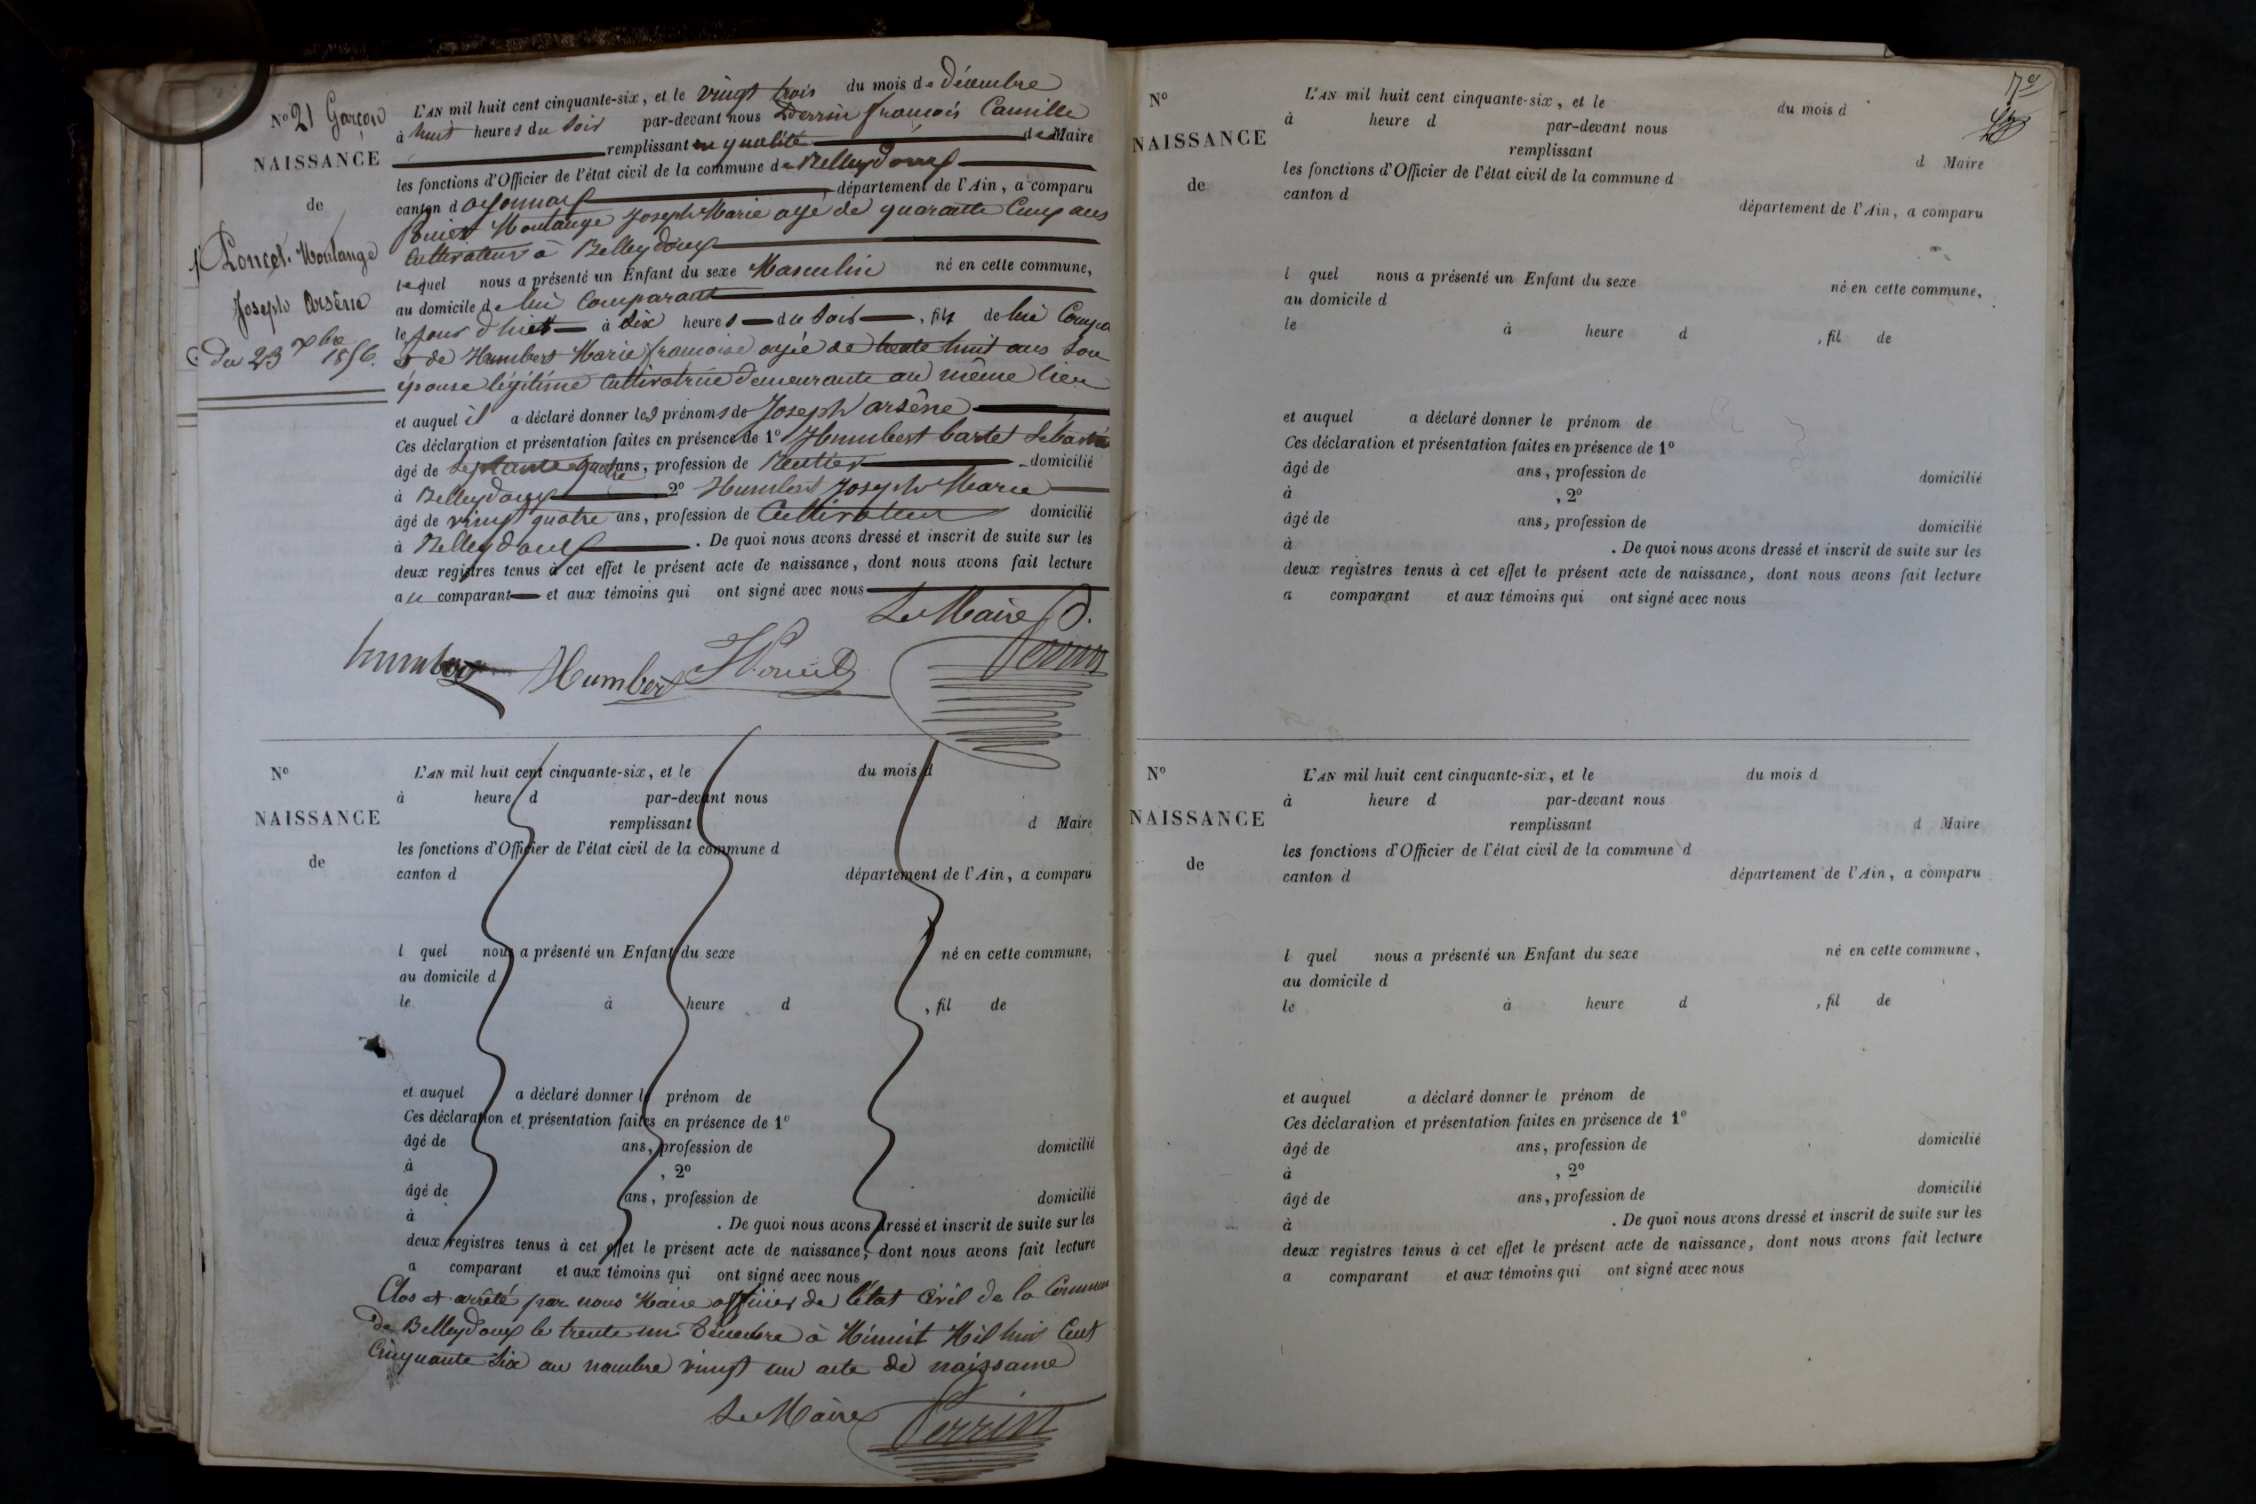 Nº 21 Garçon
NAISSANCE
de
Poncet-Moulange
Joseph Arsène
du 23 Xbre 1856.
L'AN mil huit cent cinquante-six, et le vingt trois du mois de Décembre
à huit heures du soir par-devant nous Perrin françois Camille
remplissant en qualité de Maire
les fonctions d'Officier de l'état civil de la commune de Belleydoux
canton d'oyonnax département de l'Ain, a comparu
Poncet Moulange Joseph Marie agé de quarante Cinq ans
Cultivateur à Belleydoux
lequel nous a présenté un Enfant du sexe Masculin né en cette commune,
au domicile de lui Comparant
le jour d'hier à six heures du soir, fils de lui Compa
et de Humbert Marie françoise agée de trente huit ans son
épouse légitime Cultivatrice demeurante au même lieu
et auquel il a déclaré donner les prénoms de Joseph arsène
Ces déclaration et présentation faites en présence de 1º Humbert
âgé de septante quatre ans, profession de Rentier domicilié
à Belleydoux, 2º Humbert Joseph Marie
âgé de vingt quatre ans, profession de Cultivateur domicilié
à Belleydoux. De quoi nous avons dressé et inscrit de suite sur les
deux registres tenus à cet effet le présent acte de naissance, dont nous avons fait lecture
au comparant et aux témoins qui ont signé avec nous
Le Maire
Perrin
humbert Humbert
Nº
NAISSANCE
de
L'AN mil huit cent cinquante-six, et le du mois d
à heure d par-devant nous
remplissant d Maire
les fonctions d'Officier de l'état civil de la commune d
canton d département de l'Ain, a comparu
l quel nous a présenté un Enfant du sexe né en cette commune,
au domicile d
le à heure d , fil de
et auquel a déclaré donner le prénom de
Ces déclaration et présentation faites en présence de 1º
âgé de ans, profession de domicilié
à , 2º
âgé de ans, profession de domicilié
à . De quoi nous avons dressé et inscrit de suite sur les
deux registres tenus à cet effet le présent acte de naissance, dont nous avons fait lecture
a comparant et aux témoins qui ont signé avec nous
Clos et arrêté par nous Maire officier de l'état Civil de la Commune
de Belleydoux le trente un décembre à Minuit Mil huit Cent
Cinquante six au nombre vingt un acte de naissance
Le Maire Perrin
Nº
NAISSANCE
de
L'AN mil huit cent cinquante-six, et le du mois d
à heure d par-devant nous
remplissant d Maire
les fonctions d'Officier de l'état civil de la commune d
canton d département de l'Ain, a comparu
l quel nous a présenté un Enfant du sexe né en cette commune,
au domicile d
le à heure d , fil de
et auquel a déclaré donner le prénom de
Ces déclaration et présentation faites en présence de 1º
âgé de ans, profession de domicilié
à , 2º
âgé de ans, profession de domicilié
à . De quoi nous avons dressé et inscrit de suite sur les
deux registres tenus à cet effet le présent acte de naissance, dont nous avons fait lecture
a comparant et aux témoins qui ont signé avec nous
Nº
NAISSANCE
de
L'AN mil huit cent cinquante-six, et le du mois d
à heure d par-devant nous
remplissant d Maire
les fonctions d'Officier de l'état civil de la commune d
canton d département de l'Ain, a comparu
l quel nous a présenté un Enfant du sexe né en cette commune,
au domicile d
le à heure d , fil de
et auquel a déclaré donner le prénom de
Ces déclaration et présentation faites en présence de 1º
âgé de ans, profession de domicilié
à , 2º
âgé de ans, profession de domicilié
à . De quoi nous avons dressé et inscrit de suite sur les
deux registres tenus à cet effet le présent acte de naissance, dont nous avons fait lecture
a comparant et aux témoins qui ont signé avec nous